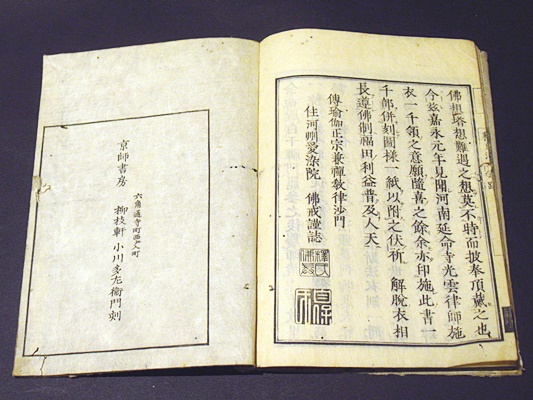 佛想塔想難遇之想莫不時而披奉頂戴之也
今玆嘉永元年見聞河南延命寺光雲律師施
衣一千領之意願隨喜之餘余亦印施此書一
千部併刻圖樣一紙以附之伏祈 解脫衣相
長遵佛制福田利益普及人天
傳瑜伽正宗兼禪敎律沙門
住河州愛染院 佛戒謹誌
京師書房
六角通寺町西入町
柳枝軒 小川多左衞門刻